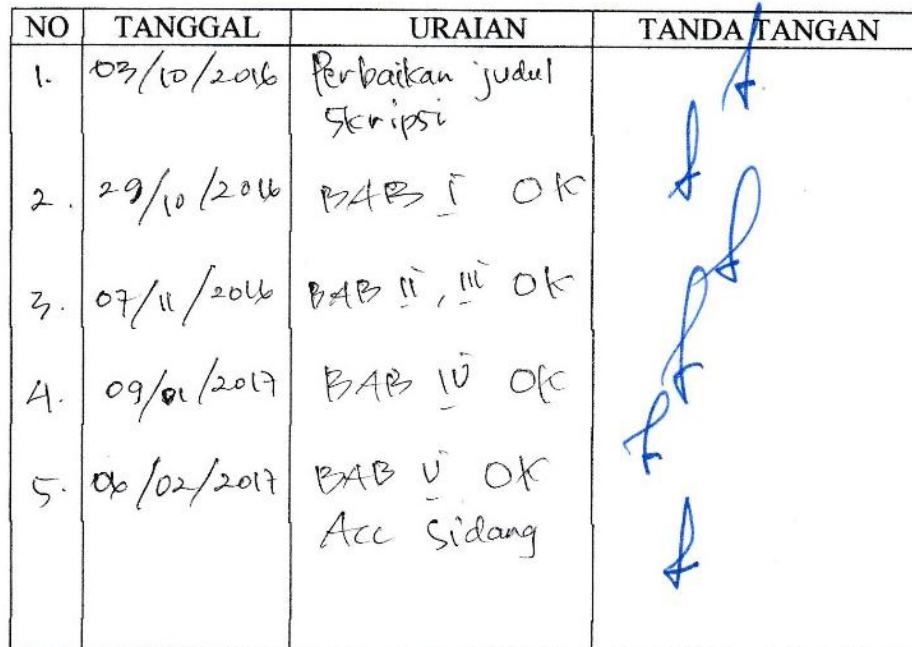 NO TANGGAL URAIAN TANDA TANGAN
1. 03/10/2016 Perbaikan judul
Skripsi
2. 29/10/2016 BAB I OK
3. 07/11/2016 BAB II, III OK
4. 09/01/2017 BAB IV OK
5. 06/02/2017 BAB V OK
Acc Sidang